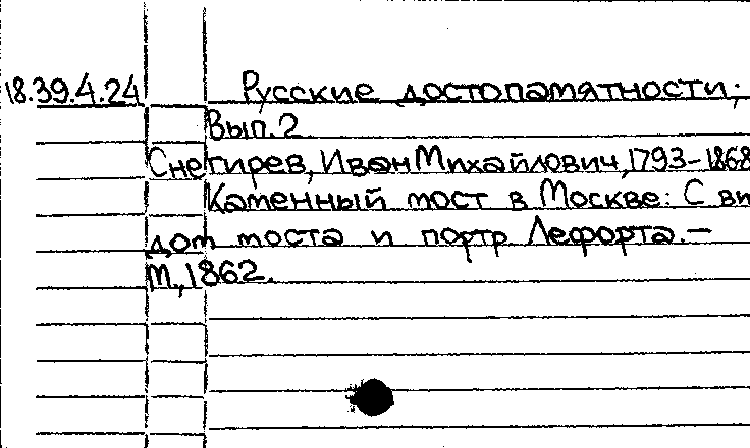 18.39.4.24 Русские достопамятности;
Вып. 2
Снегирев, Иван Михайлович, 1793-1868
Каменный мост в Москве: С ви
дом моста и портр Лефорта.-
М., 1862.